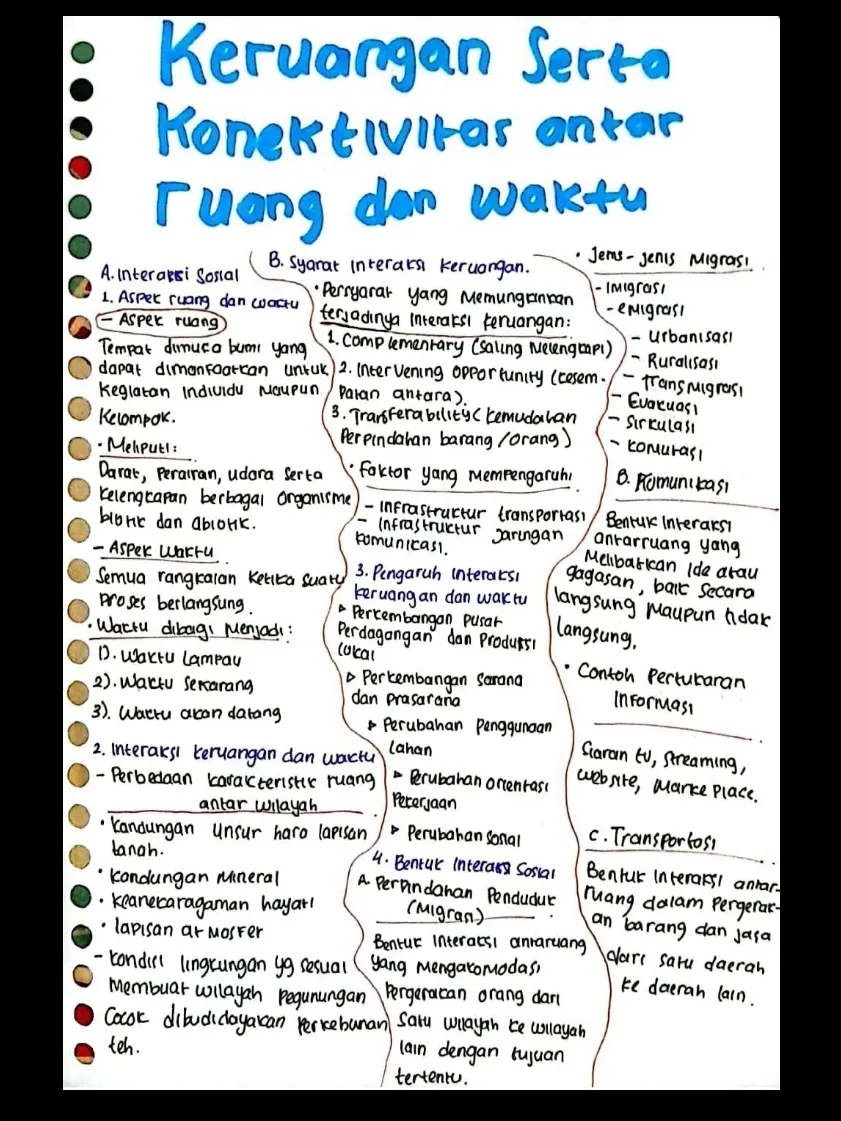 Keruangan Serta
Konektivitas antar
ruang dan waktu
A. Interaksi Sosial
1. Aspek ruang dan waktu
- Aspek ruang
Tempat dimuka bumi yang
dapat dimanfaatkan untuk
Kegiatan Individu Maupun
Kelompok.
• Meliputi:
Darat, Perairan, udara serta
Kelengkapan berbagai Organisme
biotik dan abiotik.
- Aspek Waktu
Semua rangkaian ketika suatu
Proses berlangsung.
• Waktu dibagi Menjadi:
1). Waktu Lampau
2). Waktu Sekarang
3). Waktu akan datang
2. Interaksi keruangan dan waktu
- Perbedaan karakteristik ruang
antar wilayah
• Kandungan Unsur hara lapisan
tanah.
• Kandungan Mineral
• Keanekaragaman hayati
• lapisan atMosfer
- Kondisi lingkungan yg sesuai
Membuat wilayah pegunungan
Cocok dibudidayakan Perkebunan
teh.
B. Syarat Interaksi Keruangan.
• Persyarat yang Memungkinkan
terjadinya Interaksi keruangan:
1. Complementary (Saling Melengkapi)
2. Intervening opportunity (kesem-
Patan antara).
3. Transferability (kemudahan
Perpindahan barang /orang)
• Faktor yang Mempengaruhi
- Infrastruktur transportasi
- Infrastruktur Jaringan
komunikasi.
3. Pengaruh Interaksi
keruangan dan waktu
▹ Perkembangan pusat
Perdagangan dan Produksi
Lokal
▹ Perkembangan Sarana
dan Prasarana
▹ Perubahan Penggunaan
Lahan
▹ Perubahan orientasi
Pekerjaan
▹ Perubahan Sosial
4. Bentuk Interaksi Sosial
A. Perpindahan Penduduk
(Migrasi)
Bentuk Interaksi antaruang
yang Mengakomodasi
Pergerakan orang dari
Satu wilayah ke wilayah
lain dengan tujuan
tertentu.
• Jenis-jenis Migrasi
- IMigrasi
- eMigrasi
- Urbanisasi
- Ruralisasi
- TransMigrasi
- Evakuasi
- Sirkulasi
- Komutasi
B. Komunikasi
Bentuk Interaksi
antarruang yang
Melibatkan Ide atau
gagasan, baik Secara
langsung Maupun tidak
langsung.
• Contoh Pertukaran
Informasi
Siaran tv, Streaming,
website, Marke Place.
C. Transportasi
Bentuk Interaksi antar-
ruang dalam Pergerak-
an barang dan jasa
dari satu daerah
ke daerah lain.